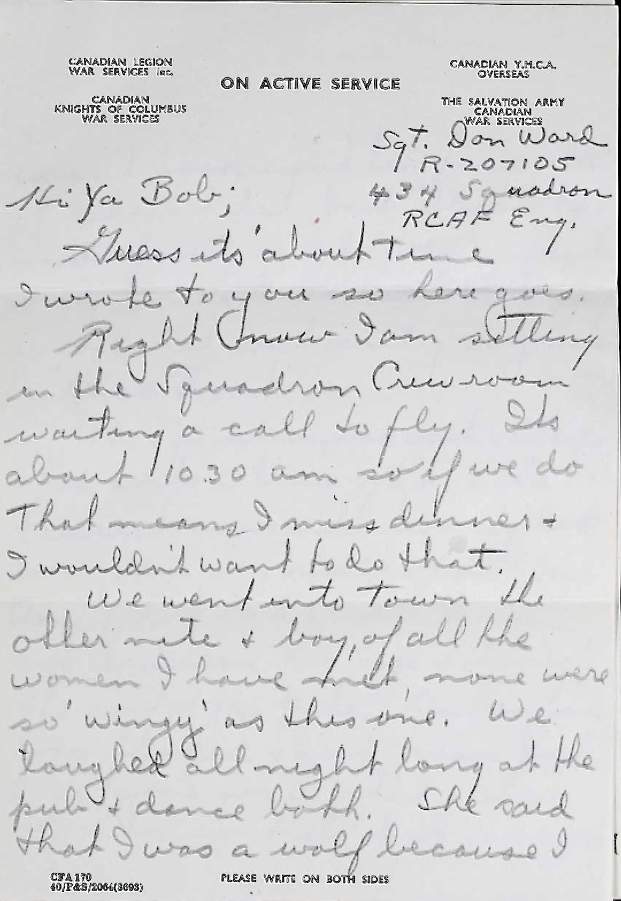 CANADIAN LEGION
WAR SERVICES INC.
CANADIAN
KNIGHTS OF COLUMBUS
WAR SERVICES
ON ACTIVE SERVICE
CANADIAN Y.M.C.A.
OVERSEAS
THE SALVATION ARMY
CANADIAN
WAR SERVICES
Sgt. Don Ward
R-207105
434 Squadron
RCAF Eng.
Hi Ya Bob;
Guess its about time
I wrote to you so here goes.
Right now I am sitting
in the Squadron Crewroom
waiting a call to fly. Its
about 10.30 am so if we do
That means I miss dinner &
I wouldn't want to do that.
We went into town the
other nite & boy, of all the
women I have met, none were
so 'wingy' as this one. We
laughed all night long at the
pub & dance both. She said
that I was a wolf because I
CFA 170
40/P&S/2064(3693)
PLEASE WRITE ON BOTH SIDES